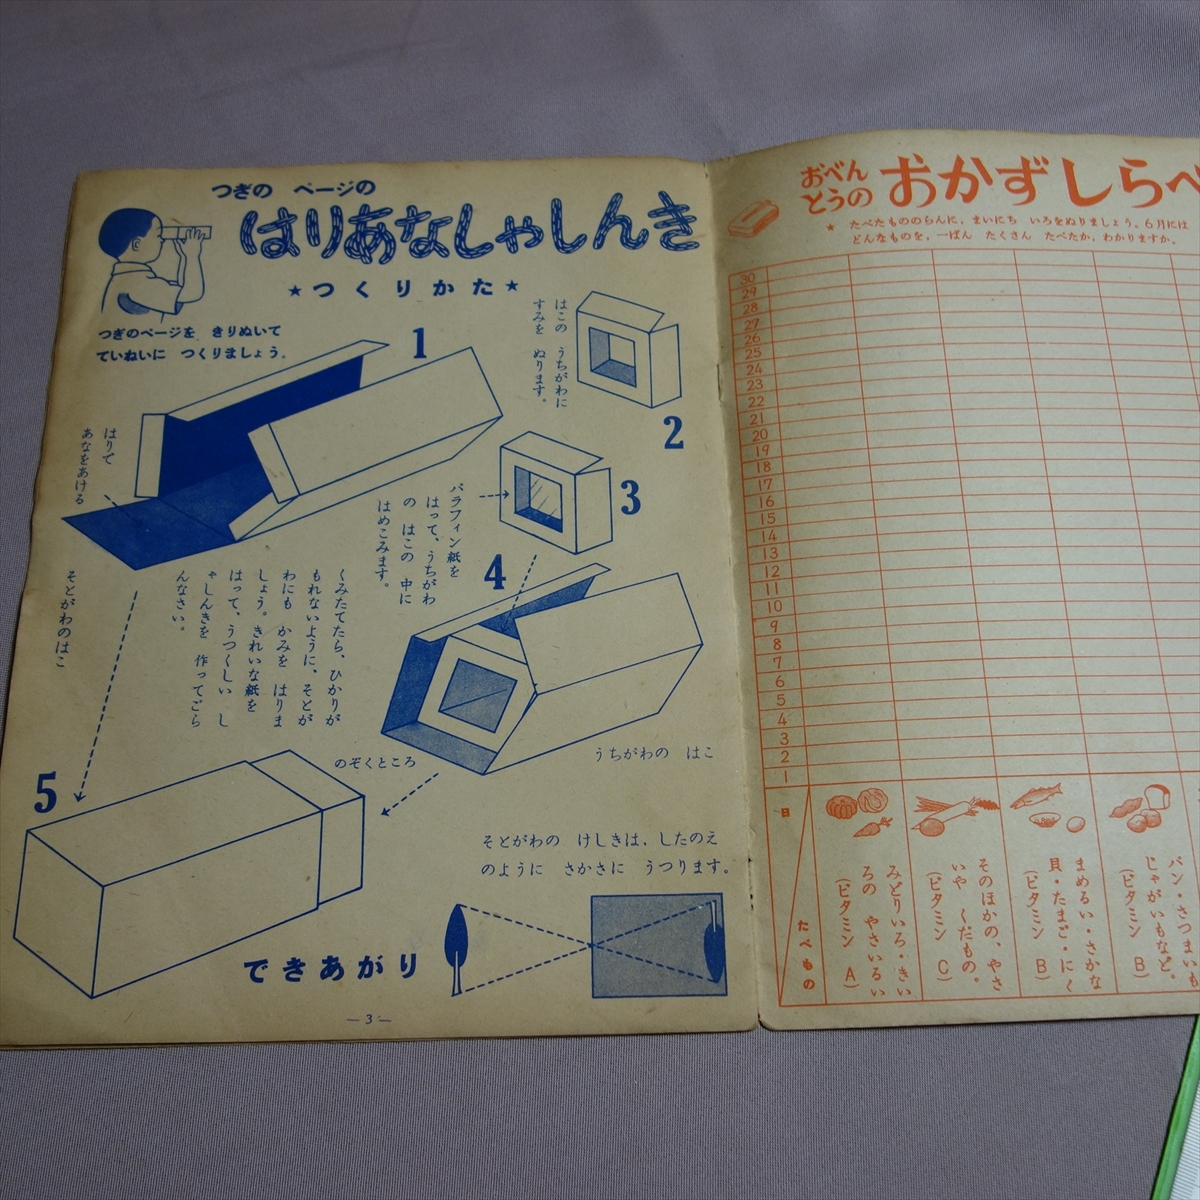 つぎの ページの
はりあなしゃしんき
★つくりかた★
つぎのページを きりぬいて
ていねいに つくりましょう。
1
はりで
あなをあける
そとがわのはこ
はこの うちがわに
すみを ぬります。
2
3
パラフィン紙を
はって、うちがわ
の はこの 中に
はめこみます。
4
うちがわの はこ
くみたてたら、ひかりが
もれないように、そとが
わにも かみを はりま
しょう。きれいな紙を
はって、うつくしい し
ゃしんきを 作ってごら
んなさい。
5
のぞくところ
できあがり
そとがわの けしきは、したのえ
のように さかさに うつります。
— 3 —
おべん
とうの
おかずしらべ
★ たべたもののらんに、まいにち いろをぬりましょう。6月には
どんなものを、一ばん たくさん たべたか、わかりますか。
30
29
28
27
26
25
24
23
22
21
20
19
18
17
16
15
14
13
12
11
10
9
8
7
6
5
4
3
2
1
日
たべもの
みどりいろ・きい
ろの やさいるい
(ビタミン A)
そのほかの、やさ
いや くだもの。
(ビタミン C)
まめるい・さかな
貝・たまご・にく
(ビタミン B)
パン・さつまいも
じゃがいもなど。
(ビタミン B)